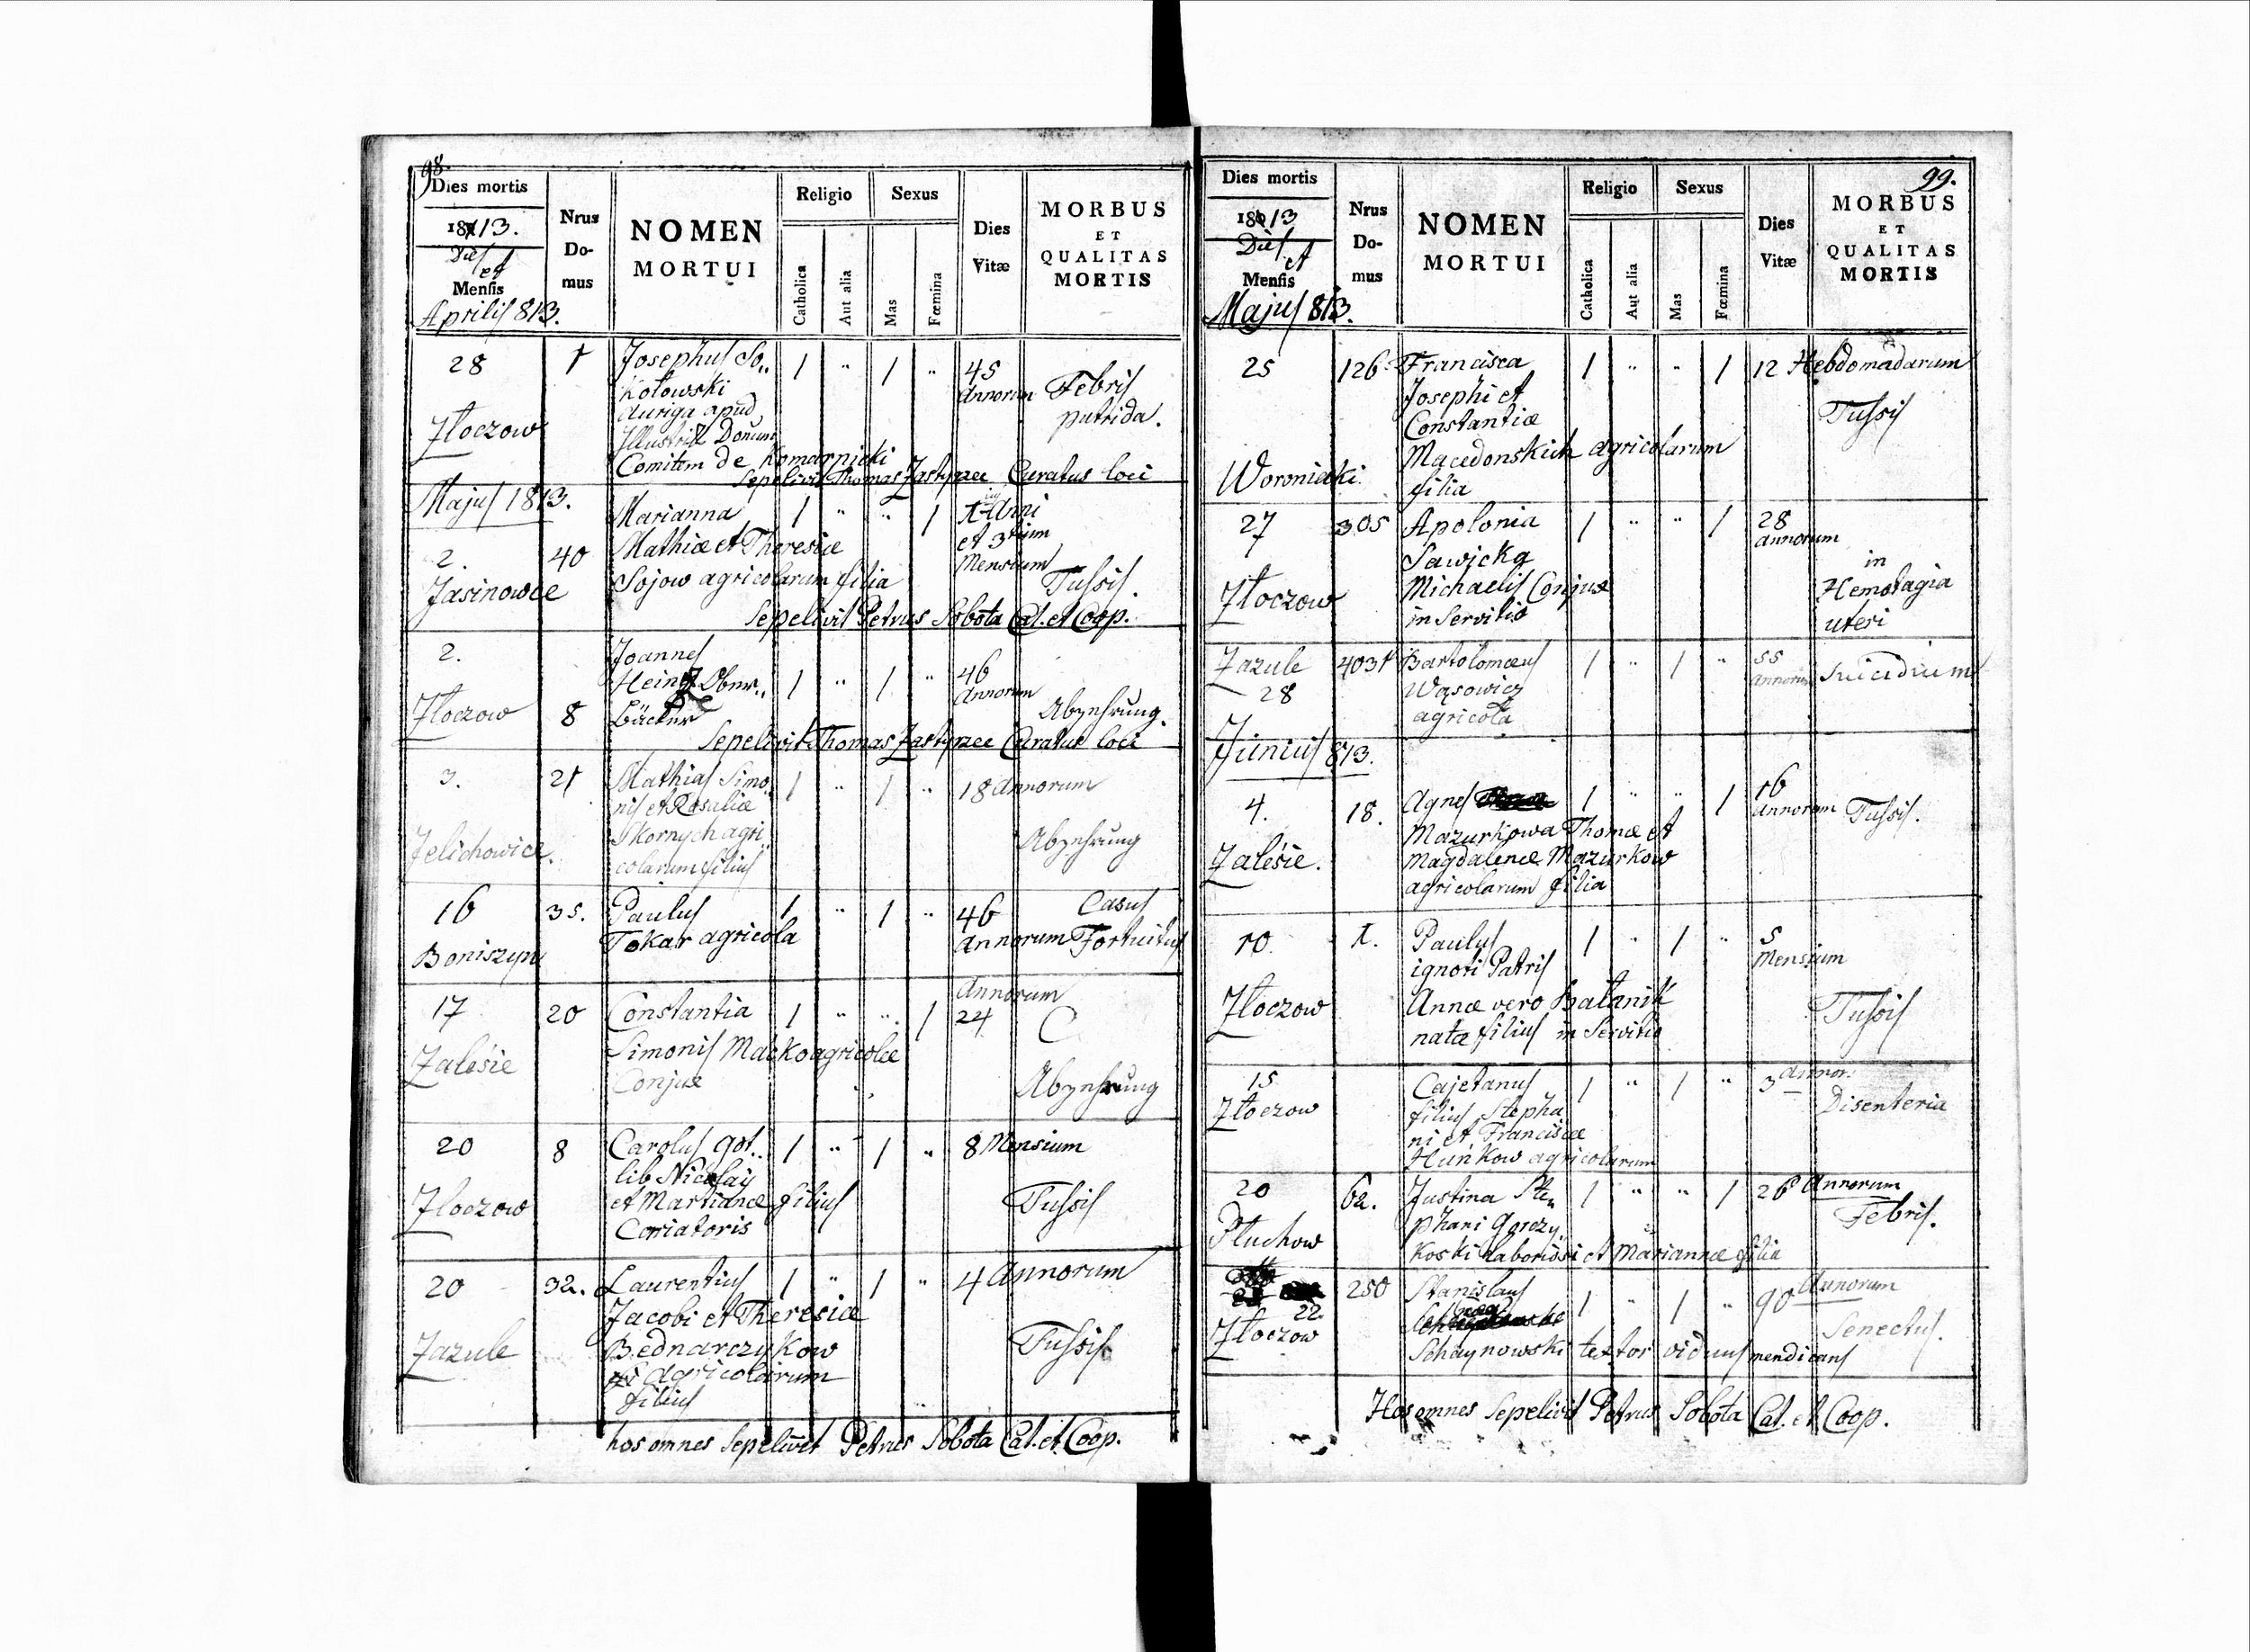 98.
Dies mortis
1813.
Dies
et
Mensis
Aprilis 813.
Nrus
Do-
mus
NOMEN
MORTUI
Religio
Catholica
Aut alia
Sexus
Mas
Fœmina
Dies
Vitæ
MORBUS
ET
QUALITAS
MORTIS
28 1 Josephus So„ 1 „ 1 „ 45
kołowski Annorum Febris
auriga apud putrida.
Złoczow Illustris Donum
Comitem de Komarnicki
Sepelivit Thomas Zastyrzec Curatus loci
Majus 1813.
Marianna 1 „ „ 1 Anni
2. 40 Mathiæ et Theresiæ et 3 Mensium
Jasinowce Sojow agricolarum filia Tussis.
Sepelivit Petrus Sobota Cal. et Coop.
2. Joannes
Heintz Ober„ 1 „ 1 „ 46
Annorum
Złoczow 8 Bäcker Abzehrung.
Sepelivit Thomas Zastyrzec Curatus loci
3. 21 Mathias Simo„ 1 „ 1 „ 18 Annorum
nis et Rosaliæ
Skornych agri„
Jelichowice. colarum filius Abzehrung
16 35. Paulus 1 „ 1 „ 46 Casus
Boniszyn Tokar agricola Annorum Fortuitus
Annorum
17 20 Constantia 1 „ „ 1 24
Zalesie Simonis Maćko agricolæ
Conjux Abzehrung
20 8 Carolus Got„ 1 „ 1 „ 8 Mensium
lib Nicolay
Złoczow et Martianæ filius Tussis
Coriatoris
20 32. Laurentius 1 „ 1 „ 4 Annorum
Jacobi et Theresiæ
Zazule Bednarczykow Tussis
agricolarum
filius
hos omnes Sepelivit Petrus Sobota Cal. et Coop.
99.
Dies mortis
1813
Dies
et
Mensis
Majus 813.
Nrus
Do-
mus
NOMEN
MORTUI
Religio
Catholica
Aut alia
Sexus
Mas
Fœmina
Dies
Vitæ
MORBUS
ET
QUALITAS
MORTIS
25 126 Francisca 1 „ „ 1 12 Hebdomadarum
Josephi et
Constantiæ Tussis
Macedonskich agricolarum
Woroniaki filia
27 305 Apolonia 1 „ „ 1 28
Annorum
Sawicka in
Złoczow Michaelis Conjux Hemoragia
in Servitio uteri
Zazule 1 „ 1 „ 55
28 Bartolomæus Annorum Suicidium
Wąsowicz
agricola
Junius 813.
4. 18. Agnes 1 „ „ 1 16
Annorum Tussis.
Mazurkowa Thomæ et
Zalesie. Magdalenæ Mazurkow
agricolarum filia
10. 1. Paulus 1 „ 1 „ 5
ignoti Patris Mensium
Złoczow Annæ vero Bałanik
natæ filius in Servitio Tussis
15 Cajetanus 1 „ 1 „ 3 Annor.
Złoczow filius Stepha Disenteria
ni et Franciscæ
Huńkow agricolarum
20 62. Justina Ste„ 1 „ „ 1 26 Annorum
phani Gorczy„ Febris.
Płuchow koski Laboriosi et Mariannæ filia
22. 250 Stanislaus 1 „ 1 „ 90 Annorum
Złoczow Senectus.
Schaynowski textor viduus mendicans
Hos omnes Sepelivit Petrus Sobota Cal. et Coop.